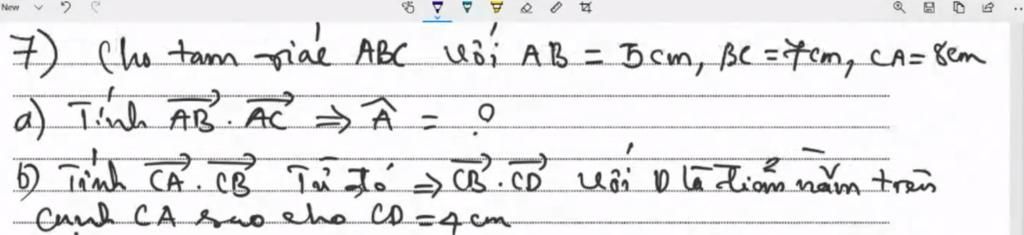 New
7) Cho tam giác ABC với AB = 5cm, BC = 7cm, CA = 8cm
a) Tính \overrightarrow{AB} . \overrightarrow{AC} ⇒ \widehat{A} = ?
b) Tính \overrightarrow{CA} . \overrightarrow{CB} Từ đó ⇒ \overrightarrow{CB} . \overrightarrow{CD} với D là điểm nằm trên
cạnh CA sao cho CD = 4 cm